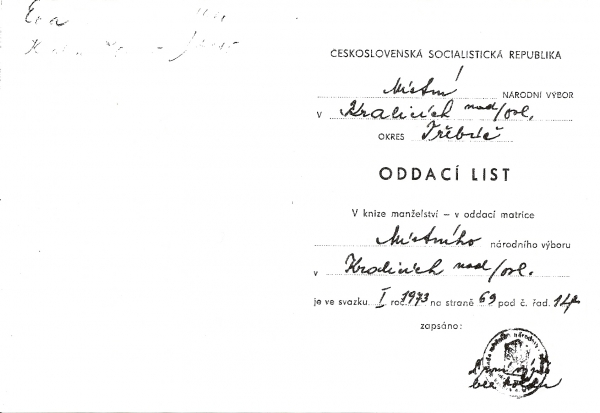 Eva
ČESKOSLOVENSKÁ SOCIALISTICKÁ REPUBLIKA
Místní NÁRODNÍ VÝBOR
V Kralicích nad/osl.
OKRES Třebíč
ODDACÍ LIST
V knize manželství – v oddací matrice
Místního národního výboru
v Kralicích nad/osl.
je ve svazku I roč. 1973 na straně 69 pod č. řad. 14
zapsáno:
bez kolku